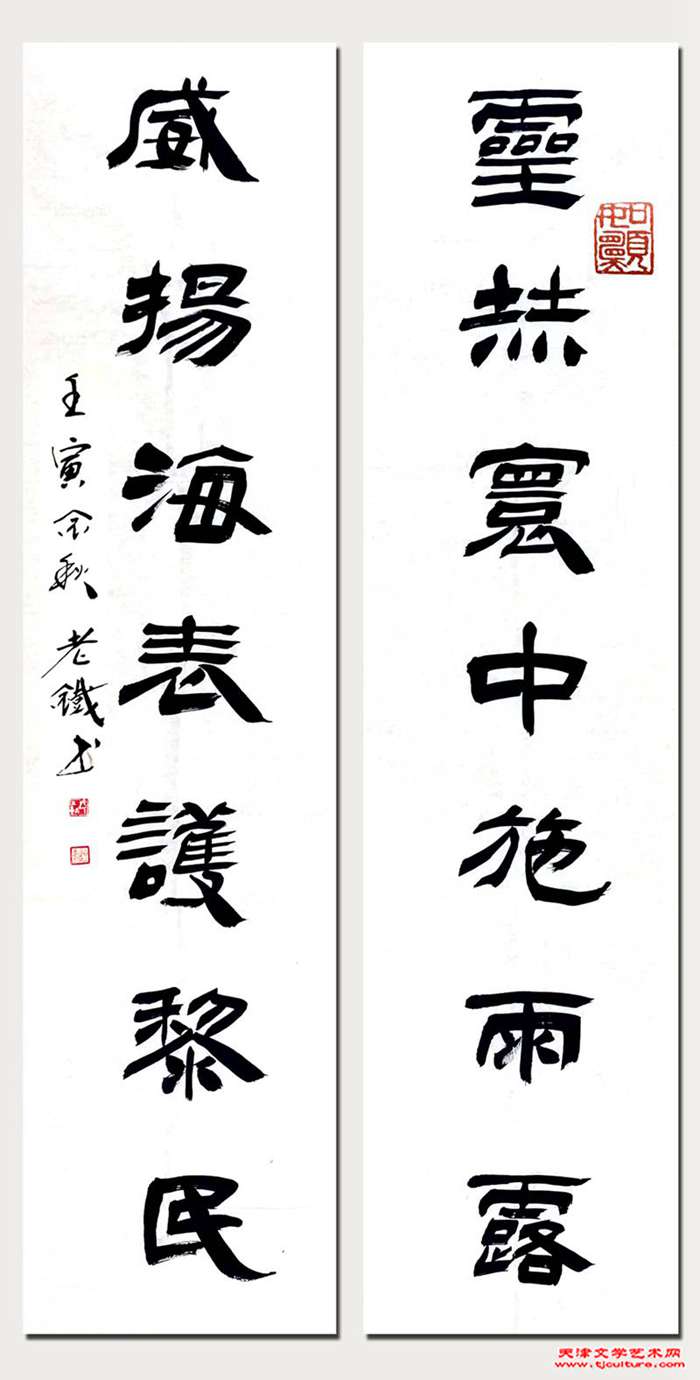 靈赫寰中施雨露
威揚海表護黎民
壬寅金秋老鐵书
天津文学艺术网
www.tjculture.com